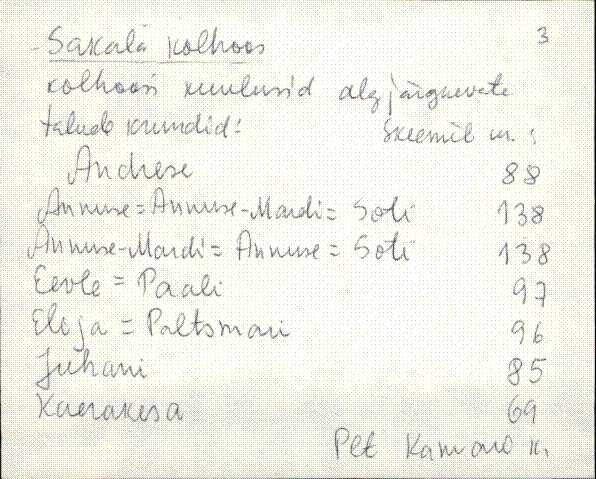 Sakala kolhoos 3
kolhoosi kuulusid alg järgnevate
talude krundid: Skeemil nr. :
Andrese 88
Annuse = Annuse-Mardi = Soti 138
Annuse-Mardi = Annuse = Soti 138
Eevle = Paali 97
Eloja = Paltsmari 96
Juhani 85
Kaerakesa 69
Plt